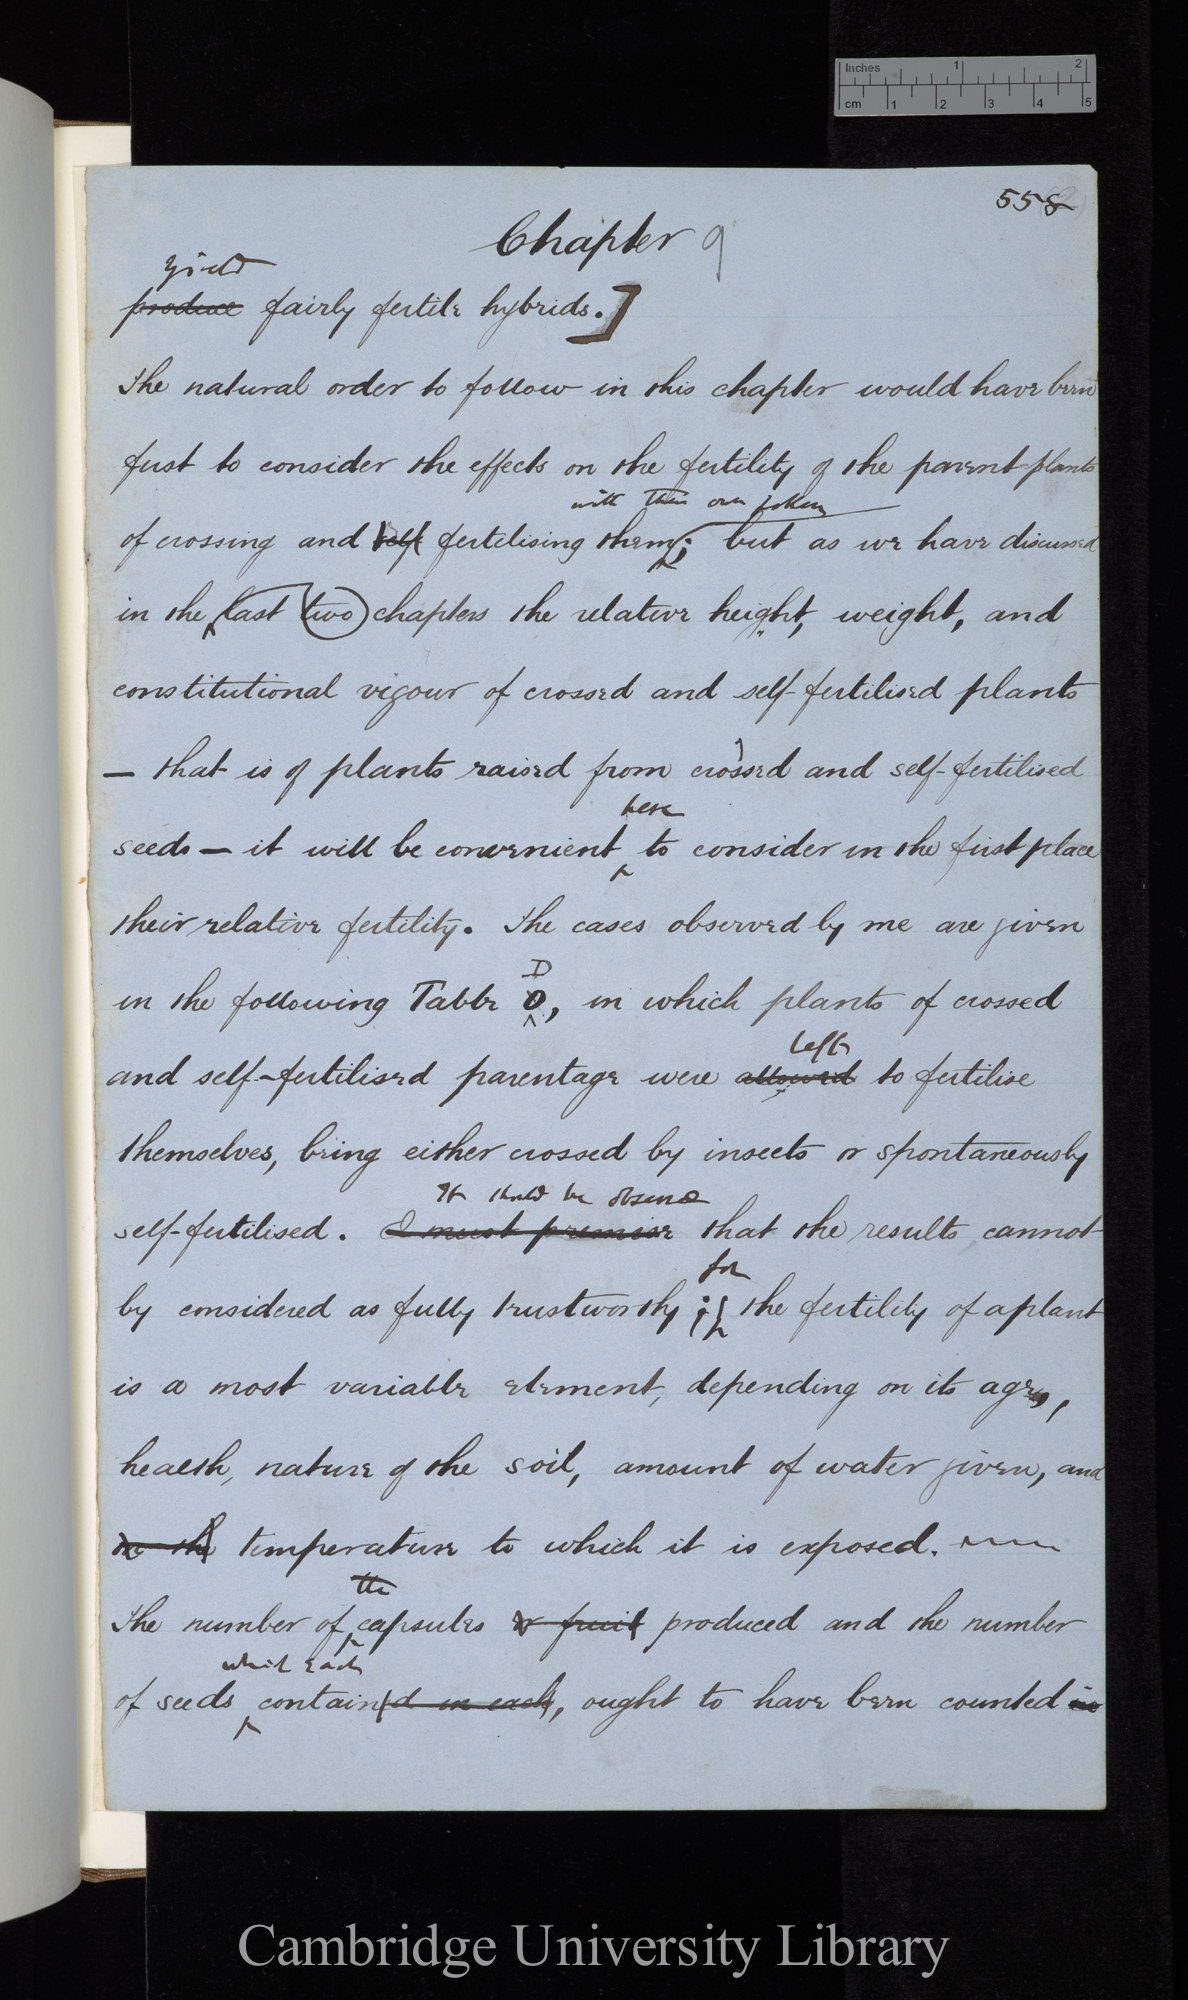 Inches 1 2
cm 1 2 3 4 5
558
Chapter 9
yield
produce fairly fertile hybrids.]
The natural order to follow in this chapter would have been
first to consider the effects on the fertility of the parent-plants
with their own pollen
of crossing and self fertilising them; but as we have discussed
in the last two chapters the relative height, weight, and
constitutional vigour of crossed and self-fertilised plants
— that is of plants raised from crossed and self-fertilised
here
seeds — it will be convenient to consider in the first place
their relative fertility. The cases observed by me are given
D
in the following Table O, in which plants of crossed
left
and self-fertilised parentage were allowed to fertilise
themselves, being either crossed by insects or spontaneously
It should be observed
self-fertilised. I must premise that the results cannot
for
by considered as fully trustworthy; the fertility of a plant
is a most variable element, depending on its age,
health, nature of the soil, amount of water given, and
on the temperature to which it is exposed.
the
The number of capsules or fruit produced and the number
which each
of seeds contained in each, ought to have been counted in
Cambridge University Library